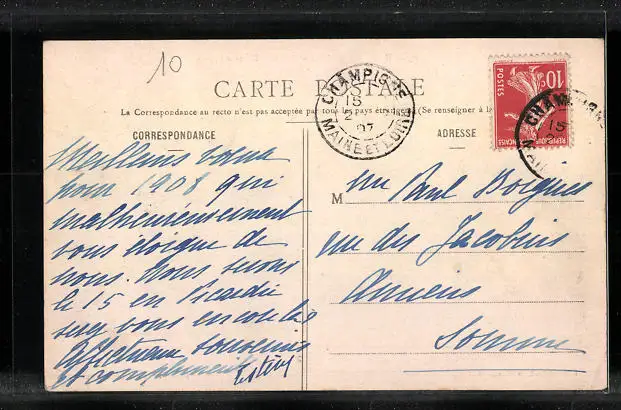 10
CARTE POSTALE
La Correspondance au recto n'est pas acceptée par tous les pays étrangers (Se renseigner à la
CORRESPONDANCE
ADRESSE
Meilleurs vœux
pour 1908 qui
malheureusement
vous éloigne de
nous. Nous serons
le 15 en Picardie
serez vous encore là
Affectueux souvenirs
et compliments
M
Paul Boignes
rue des Jacobins
Amiens
Somme
CHAMPIGNE
15
2
07
MAINE ET LOIRE
10c
POSTES
REPUBLIQUE FRANÇAISE
CHAMPIGN
15